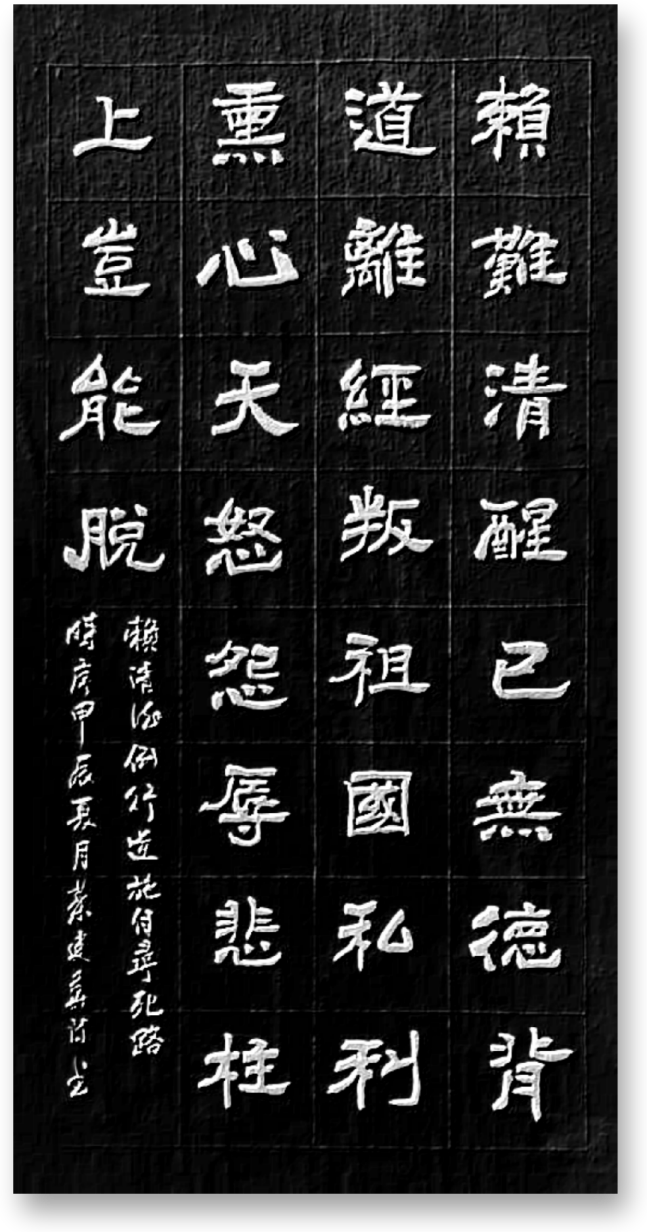 賴難清醒已無德背
道離經叛祖國私利
熏心天怒怨辱悲柱
上豈能脫
賴清德倒行逆施自尋死路
時序甲辰夏月蔡建